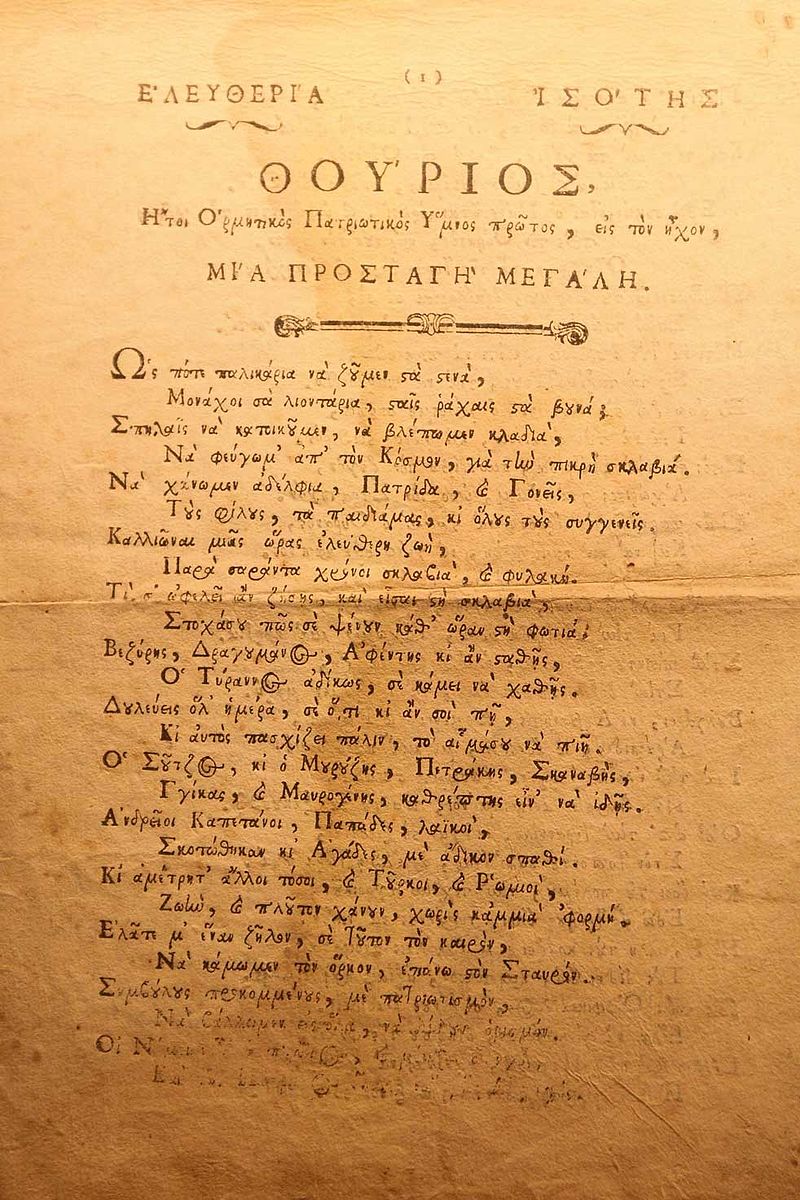 (1)
ΕʼΛΕΥΘΕΡΙʼΑ ἸΣΟʼΤΗΣ
ΘΟΥʼΡΙΟΣ,
Ἤτοι Ὁρμητικὸς Πατριωτικὸς Ὕμνος πρῶτος, εἰς τὸν ἦχον,
ΜΙʼΑ ΠΡΟΣΤΑΓΗʼ ΜΕΓΑʼΛΗ.
Ὡς πότε παλικάρια νὰ ζοῦμεν στὰ στενὰ,
Μονάχοι σὰ λιοντάρια, σταῖς ῥάχαις στὰ βουνά;
Σπηλαῖς νὰ κατοικοῦμεν, νὰ βλέπωμεν κλαδιὰ,
Νὰ φεύγωμʼ ἀπʼ τὸν Κόσμον, γιὰ τὴν πικρὴ σκλαβιά.
Νὰ χάνωμεν ἀδέλφια, Πατρίδα, ϗ Γονεῖς,
Τοὺς φίλους, τὰ παιδιάμας, κι ὅλους τοὺς συγγενεῖς.
Καλλιῶναι μιᾶς ὥρας ἐλεύθερη ζωὴ,
Παρὰ σαράντα χρόνοι σκλαβιὰ, ϗ φυλακή.
Τὶ σʼ ὠφελεῖ ἂν ζήσῃς, καὶ εἶσαι στὴ σκλαβιὰ,
Στοχάσου πῶς σὲ ψένουν καθʼ ὥραν στὴ φωτιά;
Βεζύρης, Δραγουμάνος, Ἀφέντης κι ἂν σταθῇς,
Ὁ Τύραννος ἀδίκως, σὲ κάμει νὰ χαθῇς.
Δουλεύεις ὅλʼ ἡμέρα, σὲ ὅ,τι κι ἂν σοὶ πῇ,
Κι αὐτὸς πασχίζει πάλιν, τὸ αἷμάσου νὰ πιῇ.
Ὁ Σοῦτζος, κι ὁ Μουρούζης, Πετράκης, Σκαναβῆς,
Γγίκας, ϗ Μαυρογένης, καθρέπτης εἶνʼ νὰ ἰδῇς.
Ἀνδρεῖοι Καπετάνοι, Παπάδες, λαϊκοὶ,
Σκοτώθηκαν κι Ἀγάδες, μὲ ἄδικον σπαθί.
Κι ἀμέτρητʼ ἄλλοι τόσοι, ϗ Τοῦρκοι, ϗ Ῥωμιοὶ,
Ζωὴν, ϗ πλοῦτον χάνουν, χωρὶς κᾀμμιὰ ʼφορμή.
Ἐλᾶτε μʼ ἕναν ζῆλον, σὲ τοῦτον τὸν καιρὸν,
Νὰ κάμωμεν τὸν ὅρκον, ἐπάνω στὸν Σταυρόν.
Συμβούλους προκομμένους, μὲ πατριωτισμὸν,
Νὰ βάλλωμεν εἰς ὅλα, νὰ
Οἱ